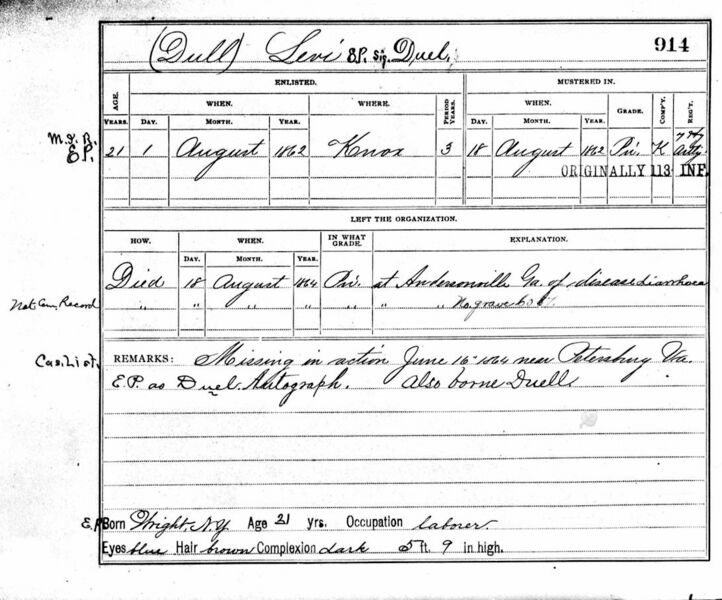 (Dull) Levi E.P. Sig. Duel. 914
ENLISTED. MUSTERED IN.
AGE. WHEN. WHERE. PERIOD YEARS. WHEN. GRADE. COMP'Y. REG'T.
YEARS. DAY. MONTH. YEAR. DAY. MONTH. YEAR.
M.I.R.
E.P. 21 1 August 1862 Knox 3 18 August 1862 Pri. K 7 Hy Arty.
ORIGINALLY 113 INF.
LEFT THE ORGANIZATION.
HOW. WHEN. IN WHAT GRADE. EXPLANATION.
DAY. MONTH. YEAR.
Died 18 August 1864 Pri. at Andersonville Ga. of disease diarrhoea
Record " " " " " " " No. grave
Cas. List. REMARKS: Missing in action June 16" 1864 near Petersburg Va.
E.P. as Duel. Autograph. Also borne Duell.
E.P. Born Wright, N.Y. Age 21 yrs. Occupation laborer.
Eyes blue Hair brown Complexion dark 5 ft. 9 in high.